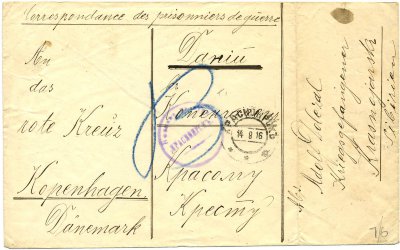 Correspondance des prisonniers de guerre
An
das
rote Kreuz
Kopenhagen
Dänemark
Данiю
Копенгагенъ
Красному
Кресту
КРАСНОЯРСКЪ
14 8 16
Abs.
Adolf
Kriegsgefangener
Krasnojarsk
Sibirien
76